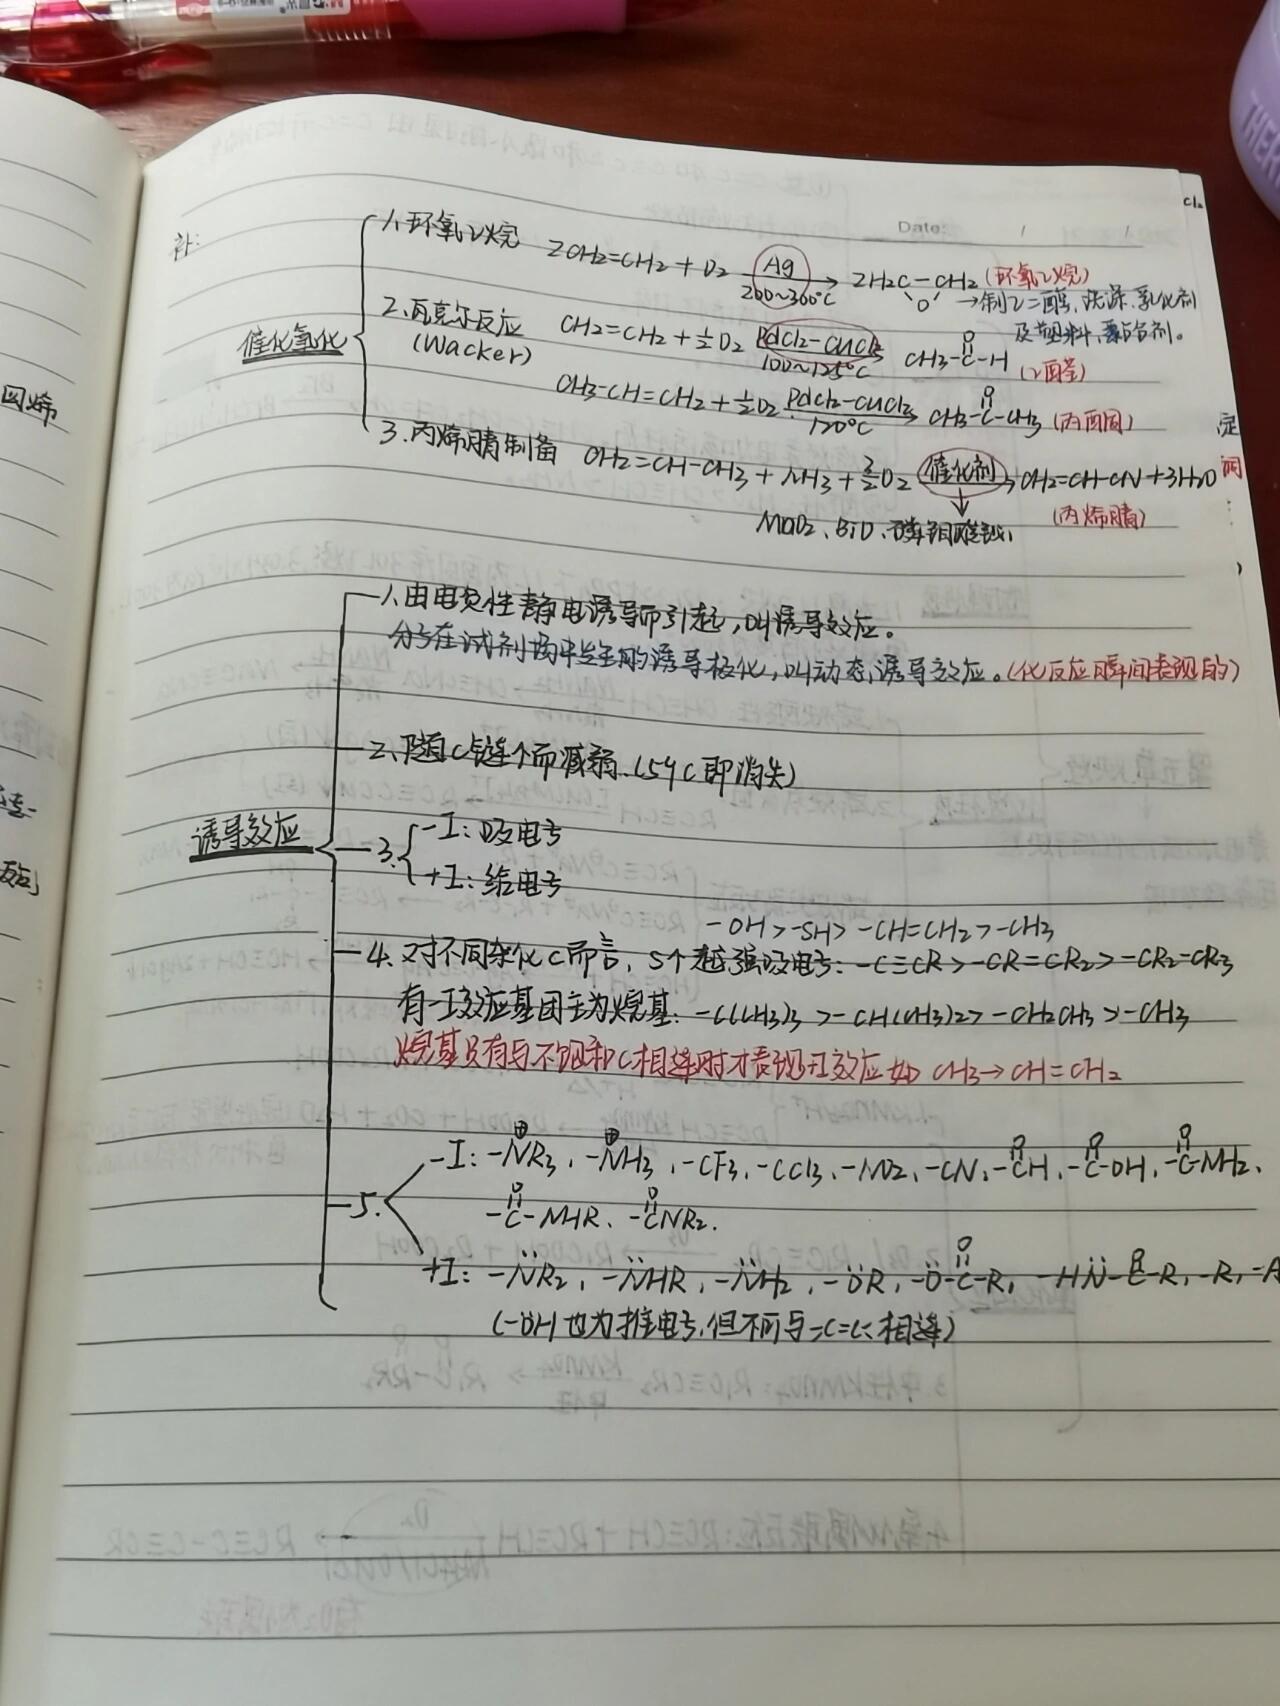 补:
Date: / /
催化氧化
1、环氧乙烷 2CH2=CH2 + O2 Ag 200~300℃ → 2H2C-CH2 O (环氧乙烷)
→制乙二醇、洗涤、乳化剂
及塑料、黏合剂。
2、瓦克尔反应 (Wacker) CH2=CH2 + ½O2 PdCl2-CuCl2 100~125℃ CH3-C-H O (乙醛)
CH3-CH=CH2 + ½O2 PdCl2-CuCl2 120℃ → CH3-C-CH3 O (丙酮)
3、丙烯腈制备 CH2=CH-CH3 + NH3 + 3/2 O2 催化剂 → CH2=CH-CN + 3H2O
(丙烯腈)
诱导效应
1、由电负性静电诱导而引起,叫诱导效应。
分子在试剂场中发生的诱导极化,叫动态诱导效应。(化反应瞬间表现的)
2、随C链个而减弱.(5个C即消失)
3. -I: 吸电子
+I: 给电子
-OH > -SH > -CH=CH2 > -CH3
4. 对不同杂化C而言, S个越强吸电子: -C≡CR > -CR=CR2 > -CR2-CR3
有-I效应基团主为烷基: -C(CH3)3 > -CH(CH3)2 > -CH2CH3 > -CH3
烷基只有与不饱和C相连时才表现+I效应如 CH3→CH=CH2
5. -I: -N⊕R3、-N⊕H3、-CF3、-CCl3、-NO2、-CN、-C(=O)H、-C(=O)-OH、-C(=O)-NH2、
-C(=O)-NHR、-C(=O)NR2.
+I: -N̈R2、-N̈HR、-N̈H2、-ÖR、-Ö-C(=O)-R、-HN̈-C(=O)-R、-R、-A
(-OH也为推电子,但不可与-C=C<相连)
因烯
定
THER